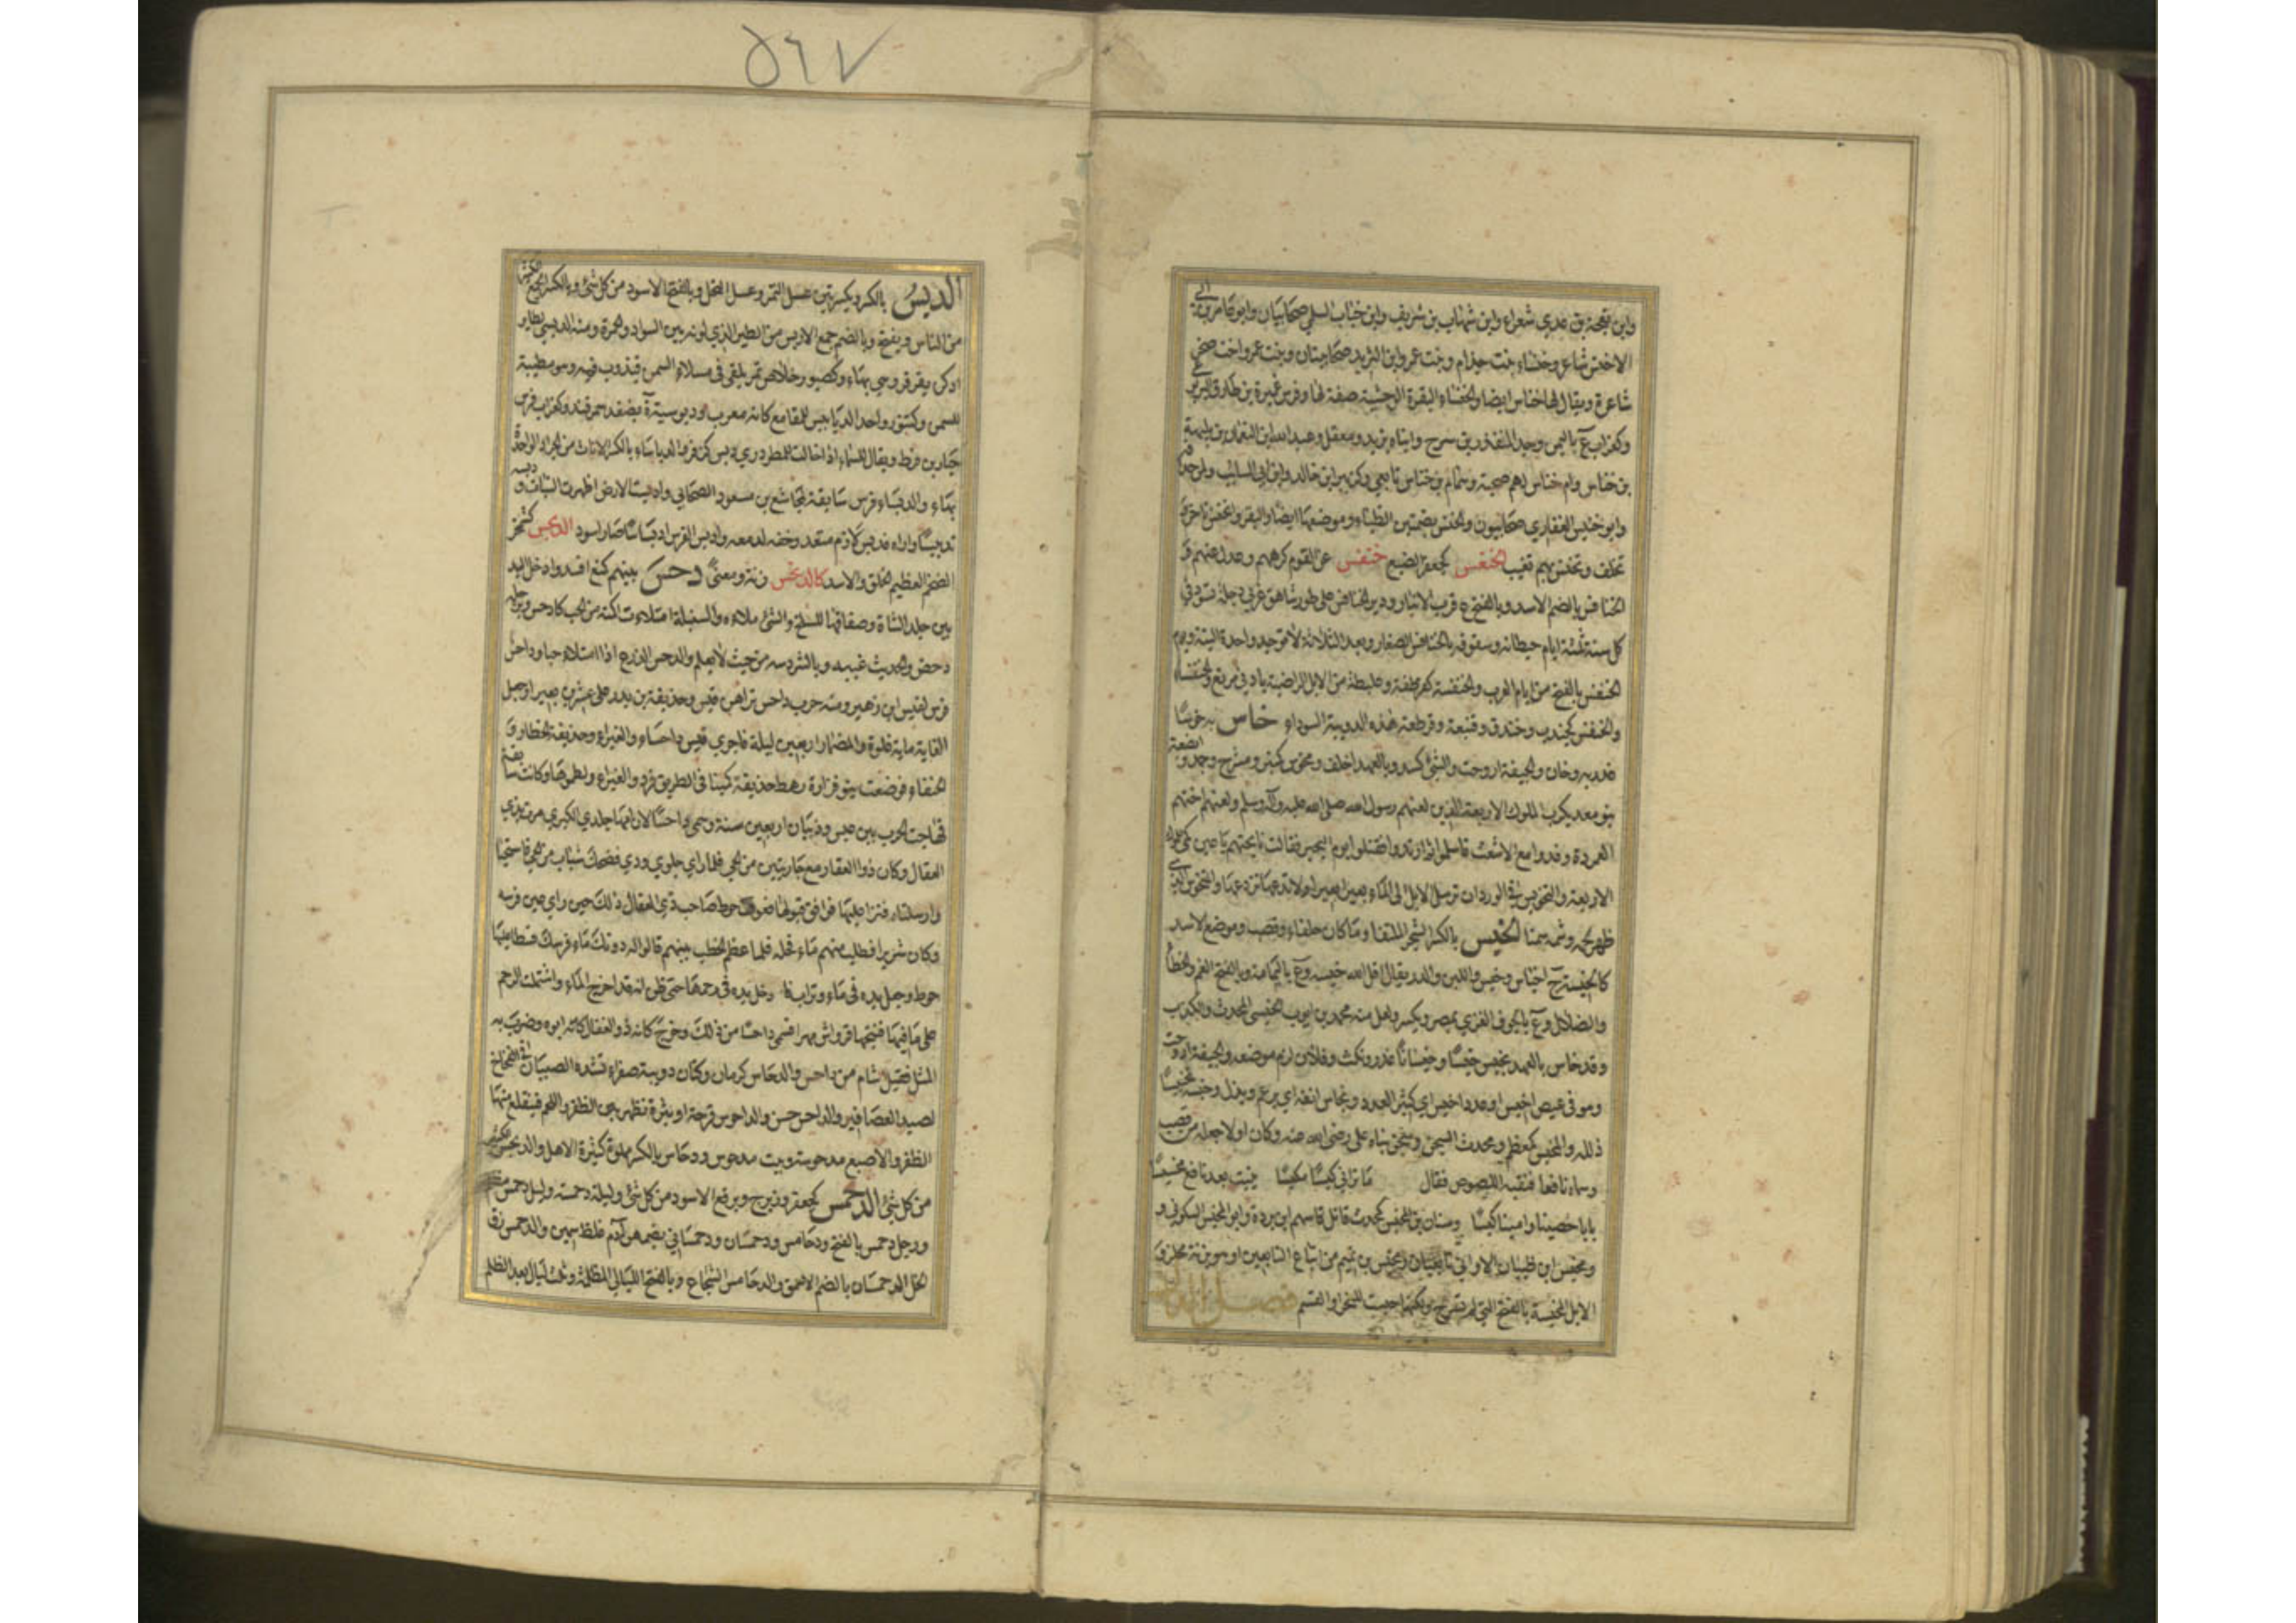 ٥٦٧
وابن نضحة بن عدي شعراء وابن شهاب بن شريف وابن خباب السلمي صحابيان وابو عامر بن ابي
الاخنس شاعر وخنساء بنت خذام وبنت عمرو ابن الشريد صحابيتان وبنت عمرو اخت صخر
شاعرة ويقال لها خناس ايضا والخنساء البقرة الوحشية صفة لها وفرس عميرة بن طارق اليربوعي
وكغراب ع باليمن وجد المنذر بن سرح وابناه يزيد ومعقل وعبد الله ابن النعمان بن بلدمة
بن خناس وام خناس لهم صحبة وهمام بن خناس تابعي وكزبير ابن خالد وابن ابي السائب
وابو خنيس الغفاري صحابيون والخنس بضمتين الظباء وموضعها ايضا والبقر وانخنس تاخر و
تخلف وتخنس بهم تغيب الخنعس كجعفر الضبع خنفس عن القوم كرههم وعدل عنهم و
الخنافس بالضم الاسد وبالفتح ع قرب الانبار ودير الخنافس على طور شاهق غربي دجلة تسود في
كل سنة ثلثة ايام حيطانه وسقوفه بالخنافس الصغار وبعد الثلاثة لا توجد واحدة البتة ويوم
الخنفس بالفتح من ايام العرب والخنفسة كقرطقة وعلبطة من الابل الراضية بادنى مرتع والخنفساء
والخنفس كجندب وخندف وقنبعة وقرطعة هذه الدويبة السوداء خاس به خوسا
غدر به وخان والجيفة اروحت والشئ كسد وبالعهد اخلف ومخوس كمنبر ومشرح وجمد وابضعة
بنو معديكرب الملوك الاربعة الذين لعنهم رسول الله صلى الله عليه وآله وسلم ولعن اختهم
العمردة وفدوا مع الاشعث فاسلموا ثم ارتدوا فقتلوا يوم النجير فقالت نائحتهم يا عين بكي لي الملوك
الاربعة والتخويس في الورد ان ترسل الابل الى الماء بعيرا بعيرا ولا تدعها تزدحم والمتخوس الذي
ظهر لحمه وشحمه سمنا الخيس بالكسر الشجر الملتف او ما كان حلفاء وقصب وموضع الاسد
كالخيسة ج اخياس وخيس واللبن والدر يقال اقل الله خيسه وع باليمامة وبالفتح الغم والخطأ
والضلال وع بالحوف الغربي بمصر ويكسر ولعل منه محمد بن ايوب الخيسي المحدث والكذب
وقد خاس بالعهد يخيس خيسا وخيسانا غدر ونكث وفلان لزم موضعه والجيفة اروحت
وهو في عيص اخيس او عدد اخيس اي كثير العدد ويخاس انفه اي يرغم ويذل وخيسه تخييسا
ذلله والمخيس كمعظم ومحدث السجن وسجن بناه علي رضي الله عنه وكان اولا جعله من قصب
وسماه نافعا فنقبه اللصوص فقال اما تراني كيسا مكيسا بنيت بعد نافع مخيسا
بابا حصينا وامينا كيسا وسنان بن المخيس كمحدث قاتل سهم ابن بردة وابو المخيس السكوني و
ومخيس ابن ظبيان الاوابي تابعيان ومخيس بن تميم من اتباع التابعين او هو بزنة مجلز و
الابل المخيسة بالفتح التي لم تسرح ولكنها حبست للنحر او القسم فصل الدال
الدبس بالكسر وبكسرتين عسل التمر وعسل النحل وبالفتح الاسود من كل شئ وبالكسر الجمع الكثير
من الناس ويفتح وبالضم جمع الادبس من الطير الذي لونه بين السواد والحمرة ومنه الدبسي لطائر
ادكن يقرقر وهي بهاء وكصبور خلاص تمر يلقى في مسلاء السمن فيذوب فيه وهو مطيبة
للسمن وكتنور واحد الدبابيس للمقامع كانه معرب ودبوسية ة بصغد سمرقند وكغراب فرس
جبار بن قرط ويقال للسماء اذا اخالت للمطر دري دبس كزفر والدباساء بالكسر الاناث من الجراد الواحدة
بهاء والدبساء فرس سابقة لمجاشع بن مسعود الصحابي وادبست الارض اظهرت النبات ودبسه
تدبيسا واراه فدبس لازم متعد وخفه لدمعه وادبس الفرس ادبساسا صار اسود الدبحس كشمخر
الضخم العظيم الخلق والاسد كالدبخس زنة ومعنى دحس بينهم كمنع افسد وادخل اليد
بين جلد الشاة وصفاقها للسلخ والشئ ملاءه والسنبلة امتلات اكمته من الحب كادحس وبرجله
دحض والحديث غيبه وبالشر دسه من حيث لا يعلم والدحس الزرع اذا امتلاء حبا وداحس
فرس لقيس ابن زهير ومنه حرب داحس تراهن قيس وحذيفة بن بدر على عشرين بعيرا وجعل
الغاية ماية غلوة والمضمار اربعين ليلة فاجرى قيس داحسا والغبراء وحذيفة الخطار و
الحنفاء فوضعت بنو فزارة رهط حذيفة كمينا في الطريق فردوا الغبراء ولطموها وكانت سابقة
فهاجت الحرب بين عبس وذبيان اربعين سنة وسمي داحسا لان امه جلوى الكبرى مرت بذي
العقال وكان ذو العقال مع جاريتين من الحي فلما راى جلوى ودي فضحك شباب من الحي فاستحيتا
وارسلتاه فنزا عليها فوافق قبولها فعرف حوط صاحب ذي العقال ذلك حين راى عين فرسه
وكان شريرا فطلب منهم ماء فحله فلما عظم الخطب بينهم قالوا له دونك ماء فرسك فسطا عليها
حوط وجعل يده في ماء وتراب فادخل يده في رحمها حتى ظن انه قد اخرج الماء واشتملت الرحم
على ما فيها فنتجها قرواش مهرا فسمي داحسا من ذلك وخرج كانه ذو العقال كانه ابوه وضرب به
المثل فقيل اشام من داحس والدحاس كرمان وكتان دويبة صفراء تشده الصبيان في الفخاخ
لصيد العصافير والداحس والداحوس قرحة او بثرة تظهر بين الظفر واللحم فينقلع منها
الظفر والاصبع مدحوسة وبيت مدحوس ودحاس بالكسر مملو كثيرة الاهل والديحس الكثير
من كل شئ الدحمس كجعفر وزبرج وبرقع الاسود من كل شئ وليلة دحمسة وليل دحمس مظلم
ورجل دحمس بالفتح ودحامس ودحمسان ودحمساني بضمهن آدم غليظ سمين والدحمس زق
الخل الدحمسان بالضم الاحمق والدحامس الشجاع وبالفتح الليالي المظلمة وثلث ليال بعد الظلم